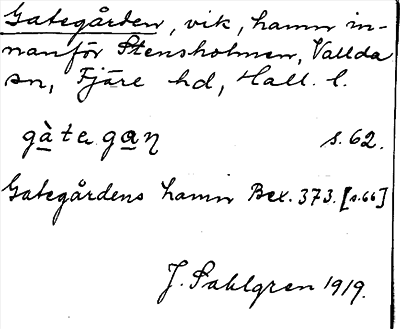 Gategården, vik, hamn in-
nanför Stensholmen, Vallda
sn, Fjäre hd, Hall. l.
gàte gaɳ s. 62.
Gategårdens hamn Bex. 373. [s.66]
J. Sahlgren 1919.